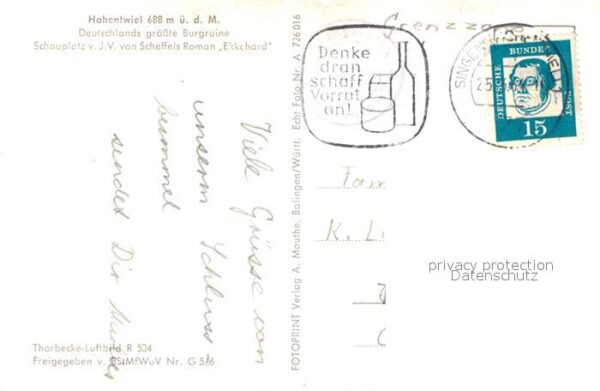 Hohentwiel 688 m ü. d. M.
Deutschlands größte Burgruine
Schauplatz v. J. V. von Scheffels Roman „Ekkehard"
Viele Grüsse von
unserm Schluss
bummel
sendet Dir
Thorbecke-Luftbild R 534
Freigegeben v. BStMfWuV Nr. G 5/6
FOTOPRINT Verlag A. Mauthe, Balingen/Württ. Echt Foto Nr. A 726 016
Denke
dran
schaff
Vorrat
an!
Grenz
SINGEN
DEUTSCHE BUNDESPOST
15
Fam
K. L
privacy protection
Datenschutz